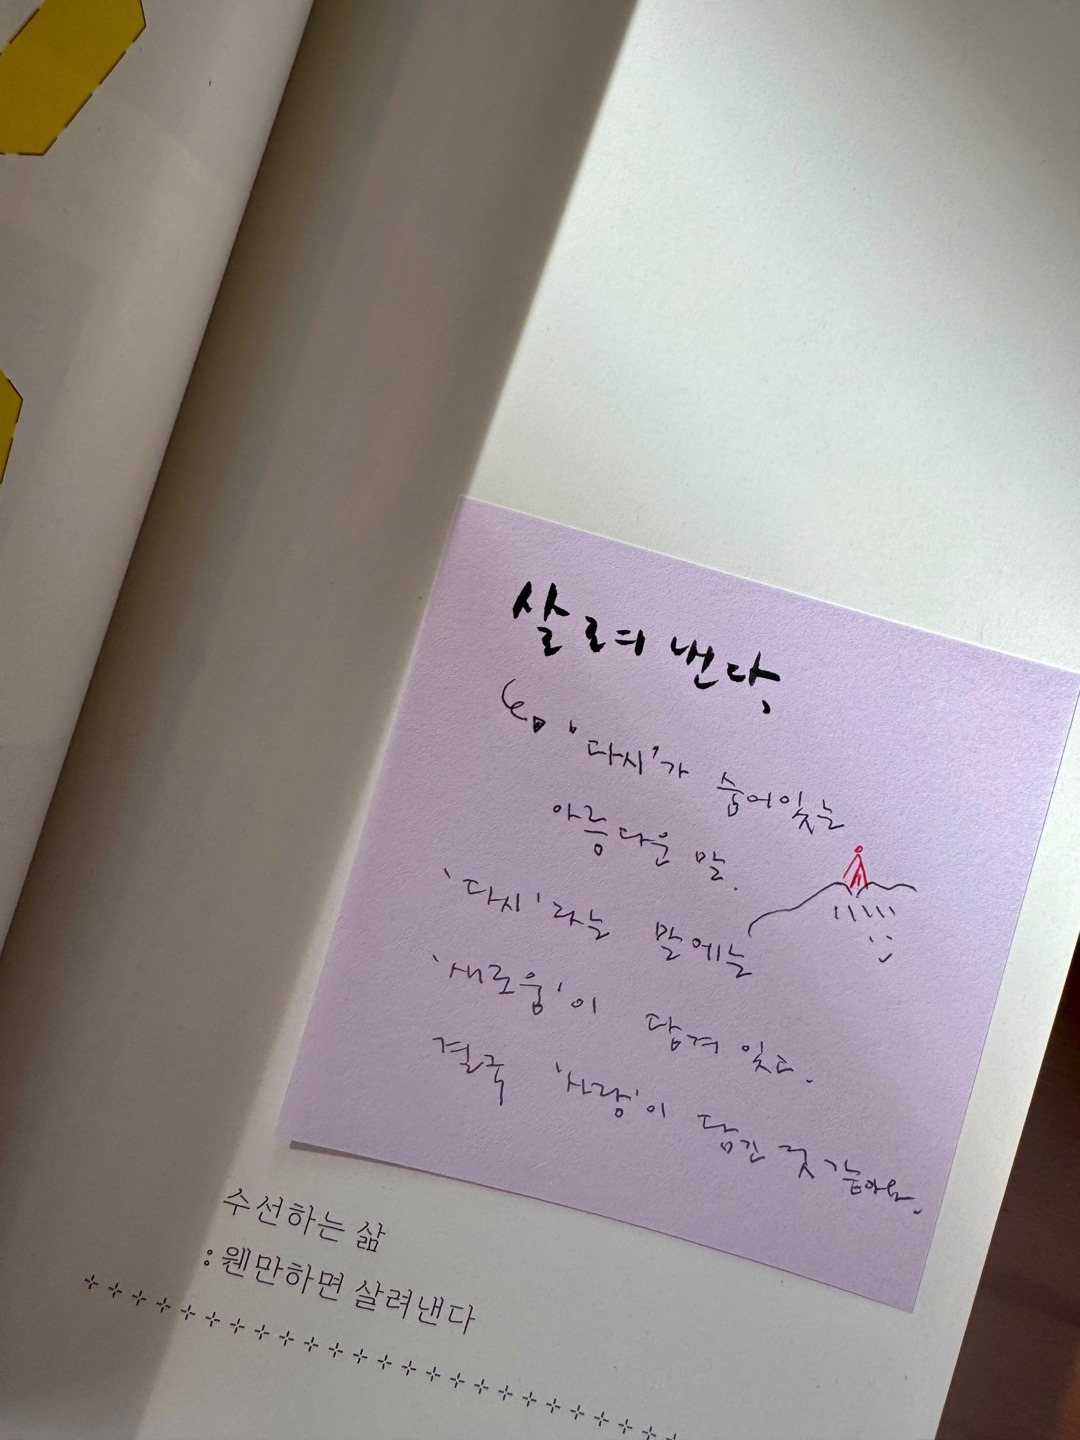 살려낸다,
'다시'가 숨어있는
아름다운 말.
'다시'라는 말에는
'새로움'이 담겨 있다.
결국 '사랑'이 담긴 것 같아요.
수선하는 삶
: 웬만하면 살려낸다